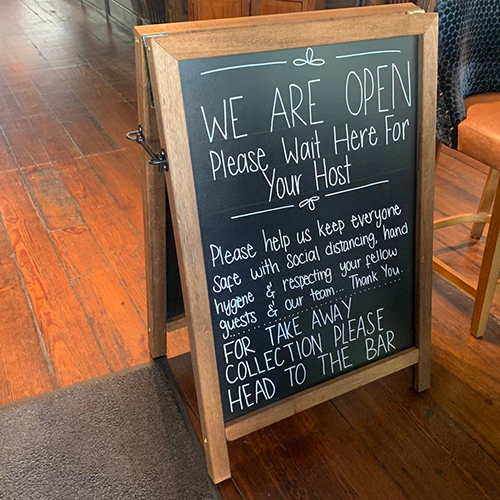 WE ARE OPEN
Please Wait Here For
Your Host
Please help us keep everyone
safe with social distancing, hand
hygene & respecting your fellow
guests & our team... Thank You.
FOR TAKE AWAY
COLLECTION PLEASE
HEAD TO THE BAR